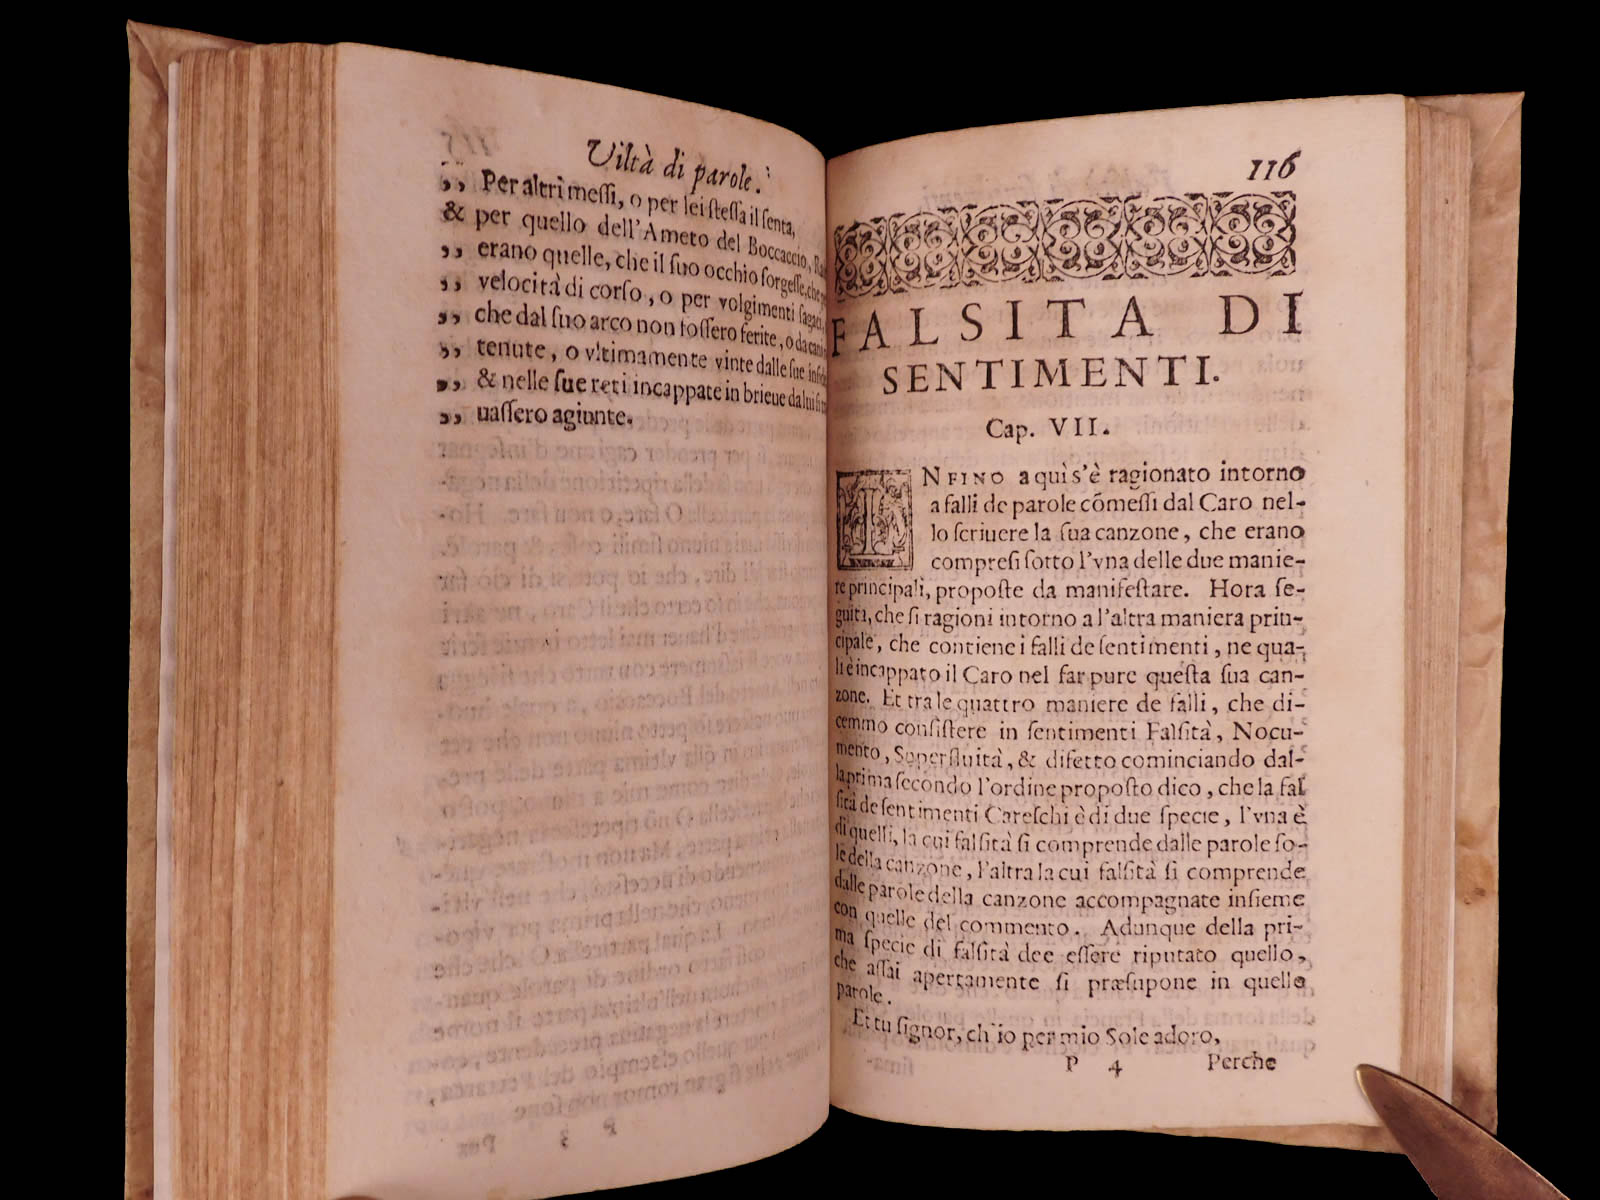 Viltà di parole.
,, Per altri messi, o per lei stessa il senta,
& per quello dell'Ameto del Boccaccio,
,, erano quelle, che il suo occhio sorgesse, che
,, velocità di corso, o per volgimenti sagaci,
,, che dal suo arco non fossero ferite, o da
,, tenute, o vltimamente vinte dalle sue
,, & nelle sue reti incappate in brieue da lui
,, uassero agiunte.
116
FALSITA DI
SENTIMENTI.
Cap. VII.
INFINO a qui s'è ragionato intorno
a falli de parole cõmessi dal Caro nel-
lo scriuere la sua canzone, che erano
compresi sotto l'vna delle due manie-
re principali, proposte da manifestare. Hora se-
guita, che si ragioni intorno a l'altra maniera prin-
cipale, che contiene i falli de sentimenti, ne qua-
li è incappato il Caro nel far pure questa sua can-
zone. Et tra le quattro maniere de falli, che di-
cemmo consistere in sentimenti Falsità, Nocu-
mento, Soperfluità, & difetto cominciando dal-
la prima secondo l'ordine proposto dico, che la fal
sità de sentimenti Careschi è di due specie, l'vna è
di quelli, la cui falsità si comprende dalle parole so-
le della canzone, l'altra la cui falsità si comprende
dalle parole della canzone accompagnate insieme
con quelle del commento. Adunque della pri-
ma specie di falsità dee essere riputato quello,
che assai apertamente si præsupone in quelle
parole.
Et tu signor, ch'io per mio Sole adoro,
P 4 Perche